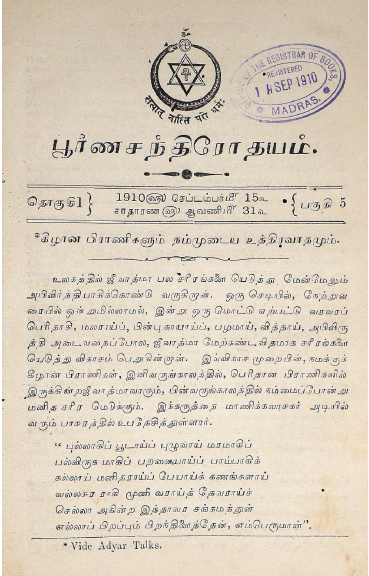 सत्यात् नास्ति परो धर्मः
OFFICE OF THE REGISTRAR OF BOOKS,
REGISTERED
1 SEP 1910
MADRAS.
பூர்ணசந்திரோதயம்.
தொகுதி 1 } 1910௵ செப்டம்பர்௴ 15௳ { பகுதி 5
சாதாரண௵ ஆவணி௴ 31௳
*கீழான பிராணிகளும் நம்முடைய உத்திரவாதமும்.
உலகத்தில் ஜீவாத்மா பல சரீரங்களை யெடுத்து மேன்மேலும்
அபிவிர்த்தியாகிக்கொண்டு வருகிறான். ஒரு செடியில், நேற்று
வரையில் ஒன்றுமில்லாமல், இன்று ஒரு மொட்டு ஏற்பட்டு வரவரப்
பெரிதாகி, மலராய்ப், பின்பு காயாய்ப், பழமாய், வித்தாய், அபிவிரு
த்தி அடைவதைப்போல, ஜீவாத்மா மேற்கண்டவிதமாக சரீரங்களை
யெடுத்து விகாசம் பெறுகின்றான். இவ்விகாச முறையின், நமக்குக்
கீழான பிராணிகள், இனிவருங்காலத்தில், பெரிதான பிராணிகளில்
இருக்கின்ற ஜீவாத்மாவாகும், பின்வருங்காலத்தில் நம்மைப்போன்று
மனித சரீர மெடுக்கும். இக்கருத்தை மாணிக்கவாசகர் அடியில்
வரும் பாசுரத்தில் உபதேசித்துள்ளார்.
“ புல்லாகிப் பூடாய்ப் புழுவாய் மரமாகிப்
பல்விருக மாகிப் பறவையாய்ப் பாம்பாகிக்
கல்லாய் மனிதராய்ப் பேயாய்க் கணங்களாய்
வல்லசுர ராகி முனி வராய்த் தேவராய்ச்
செல்லா அகின்ற இத்தாவர சங்கமத்துள்
எல்லாப் பிறப்பும் பிறந்திளைத்தேன், எம்பெருமான்”,
* Vide Adyar Talks.